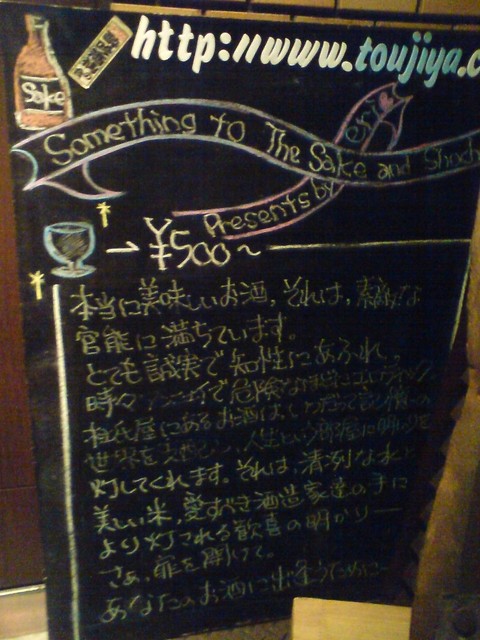 http://www.toujiya.c
Sake
Something to The Sake and Shoch
Presents by eric
→ ¥500〜
本当に美味しいお酒、それは、素敵な
官能に満ちています。
とても誠実で知性にあふれ、
時々 で危険な
杜氏屋にあるお酒は、いつだって
世界を支配し、人生という部屋に明りを
灯してくれます。それは、清冽な水と
美しい米、愛すべき酒造家達の手に
より灯される歓喜の明かり──
さぁ、扉を開けて。
あなたのお酒に出逢うために〜